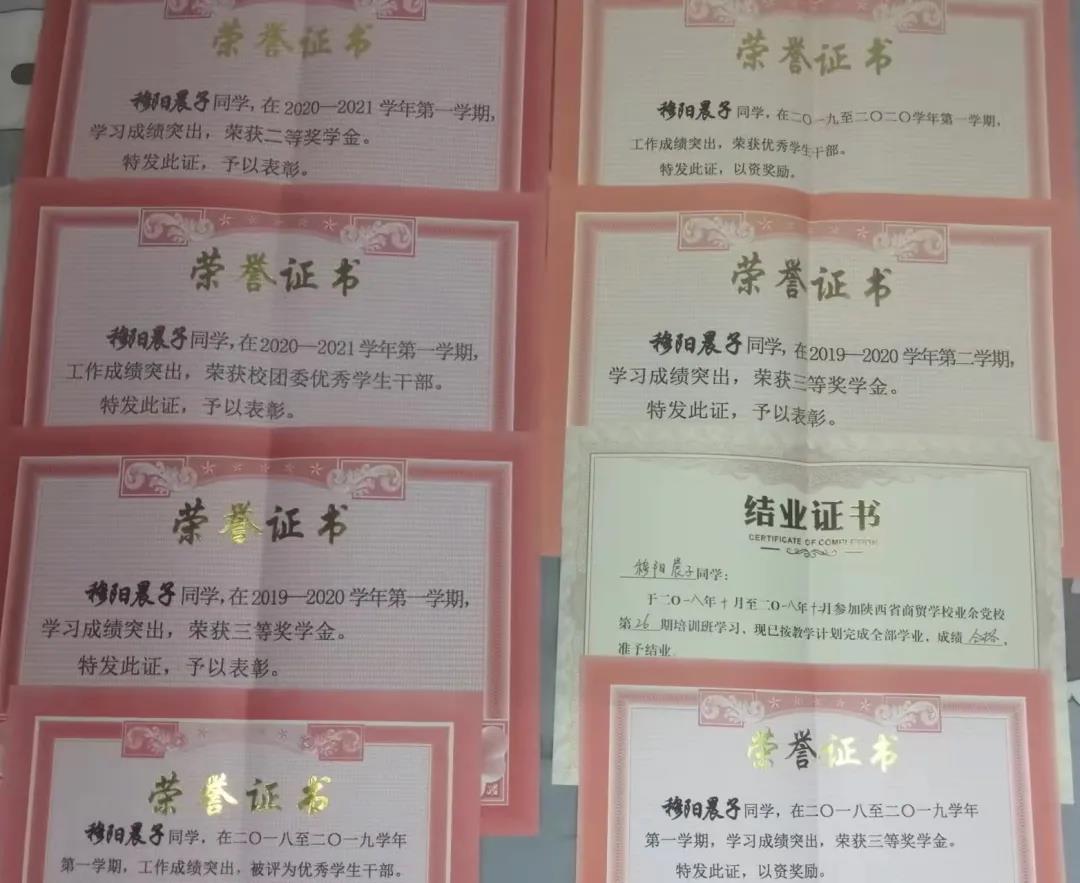 荣誉证书
穆阳晨子同学，在2020—2021学年第一学期，
学习成绩突出，荣获二等奖学金。
特发此证，予以表彰。
荣誉证书
穆阳晨子同学，在2020—2021学年第一学期，
工作成绩突出，荣获校团委优秀学生干部。
特发此证，予以表彰。
荣誉证书
穆阳晨子同学，在2019—2020学年第一学期，
学习成绩突出，荣获三等奖学金。
特发此证，予以表彰。
荣誉证书
穆阳晨子同学，在二〇一八至二〇一九学年
第一学期，工作成绩突出，被评为优秀学生干部。
荣誉证书
穆阳晨子同学，在二〇一九至二〇二〇学年第一学期，
工作成绩突出，荣获优秀学生干部。
特发此证，以资奖励。
荣誉证书
穆阳晨子同学，在2019—2020学年第二学期，
学习成绩突出，荣获三等奖学金。
特发此证，予以表彰。
结业证书
CERTIFICATE OF COMPLETION
穆阳晨子同学：
于二〇一八年十月至二〇一八年十月参加陕西省商贸学校业余党校
第26期培训班学习、现已按教学计划完成全部学业，成绩合格，
准予结业
荣誉证书
穆阳晨子同学，在二〇一八至二〇一九学年
第一学期，学习成绩突出，荣获三等奖学金。
特发此证，以资奖励。